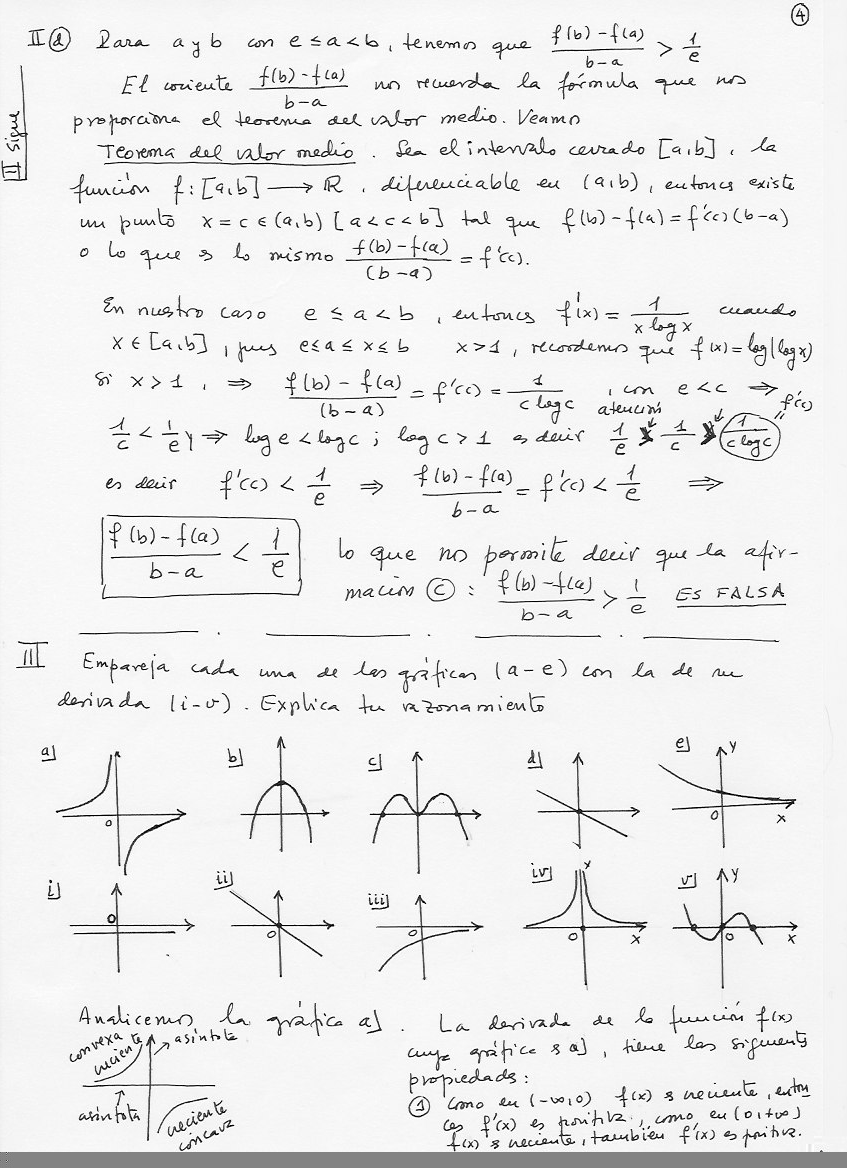 ④
II ⓓ Para a y b con e ≤ a < b, tenemos que (f(b) - f(a))/(b-a) > 1/e
II sigue
El cociente (f(b) - f(a))/(b-a) nos recuerda la fórmula que nos
proporciona el teorema del valor medio. Veamos
Teorema del valor medio. Sea el intervalo cerrado [a,b], la
función f: [a,b] ⟶ ℝ, diferenciable en (a,b), entonces existe
un punto x = c ∈ (a,b) [a<c<b] tal que f(b) - f(a) = f'(c)(b-a)
o lo que es lo mismo (f(b) - f(a))/(b-a) = f'(c).
En nuestro caso e ≤ a < b, entonces f'(x) = 1/(x log x) cuando
x ∈ [a,b], pues e ≤ a ≤ x ≤ b x>1, recordemos que f(x) = log(log x)
Si x > 1, ⇒ (f(b) - f(a))/(b-a) = f'(c) = 1/(c log c), con e < c ⇒
atención f'(c)
1/c < 1/e y ⇒ log e < log c ; log c > 1 es decir 1/e > 1/c > 1/(c log c)
es decir f'(c) < 1/e ⇒ (f(b) - f(a))/(b-a) = f'(c) < 1/e ⇒
(f(b) - f(a))/(b-a) < 1/e lo que nos permite decir que la afir-
mación ⓒ : (f(b) - f(a))/(b-a) > 1/e ES FALSA
III Empareja cada una de las gráficas (a-e) con la de su
derivada (i-v). Explica tu razonamiento
a] b] c] d] e] y
0 0 x
i] ii] iii] iv] y v] y
0 0 0 0 x 0 x
Analicemos la gráfica a]. La derivada de la función f(x)
cuya gráfica es a], tiene las siguientes
propiedades:
convexa
creciente
asíntota
asíntota
creciente
cóncava
① Como en (-∞,0) f(x) es creciente, enton
ces f'(x) es positiva, como en (0,+∞)
f(x) es creciente, también f'(x) es positiva.